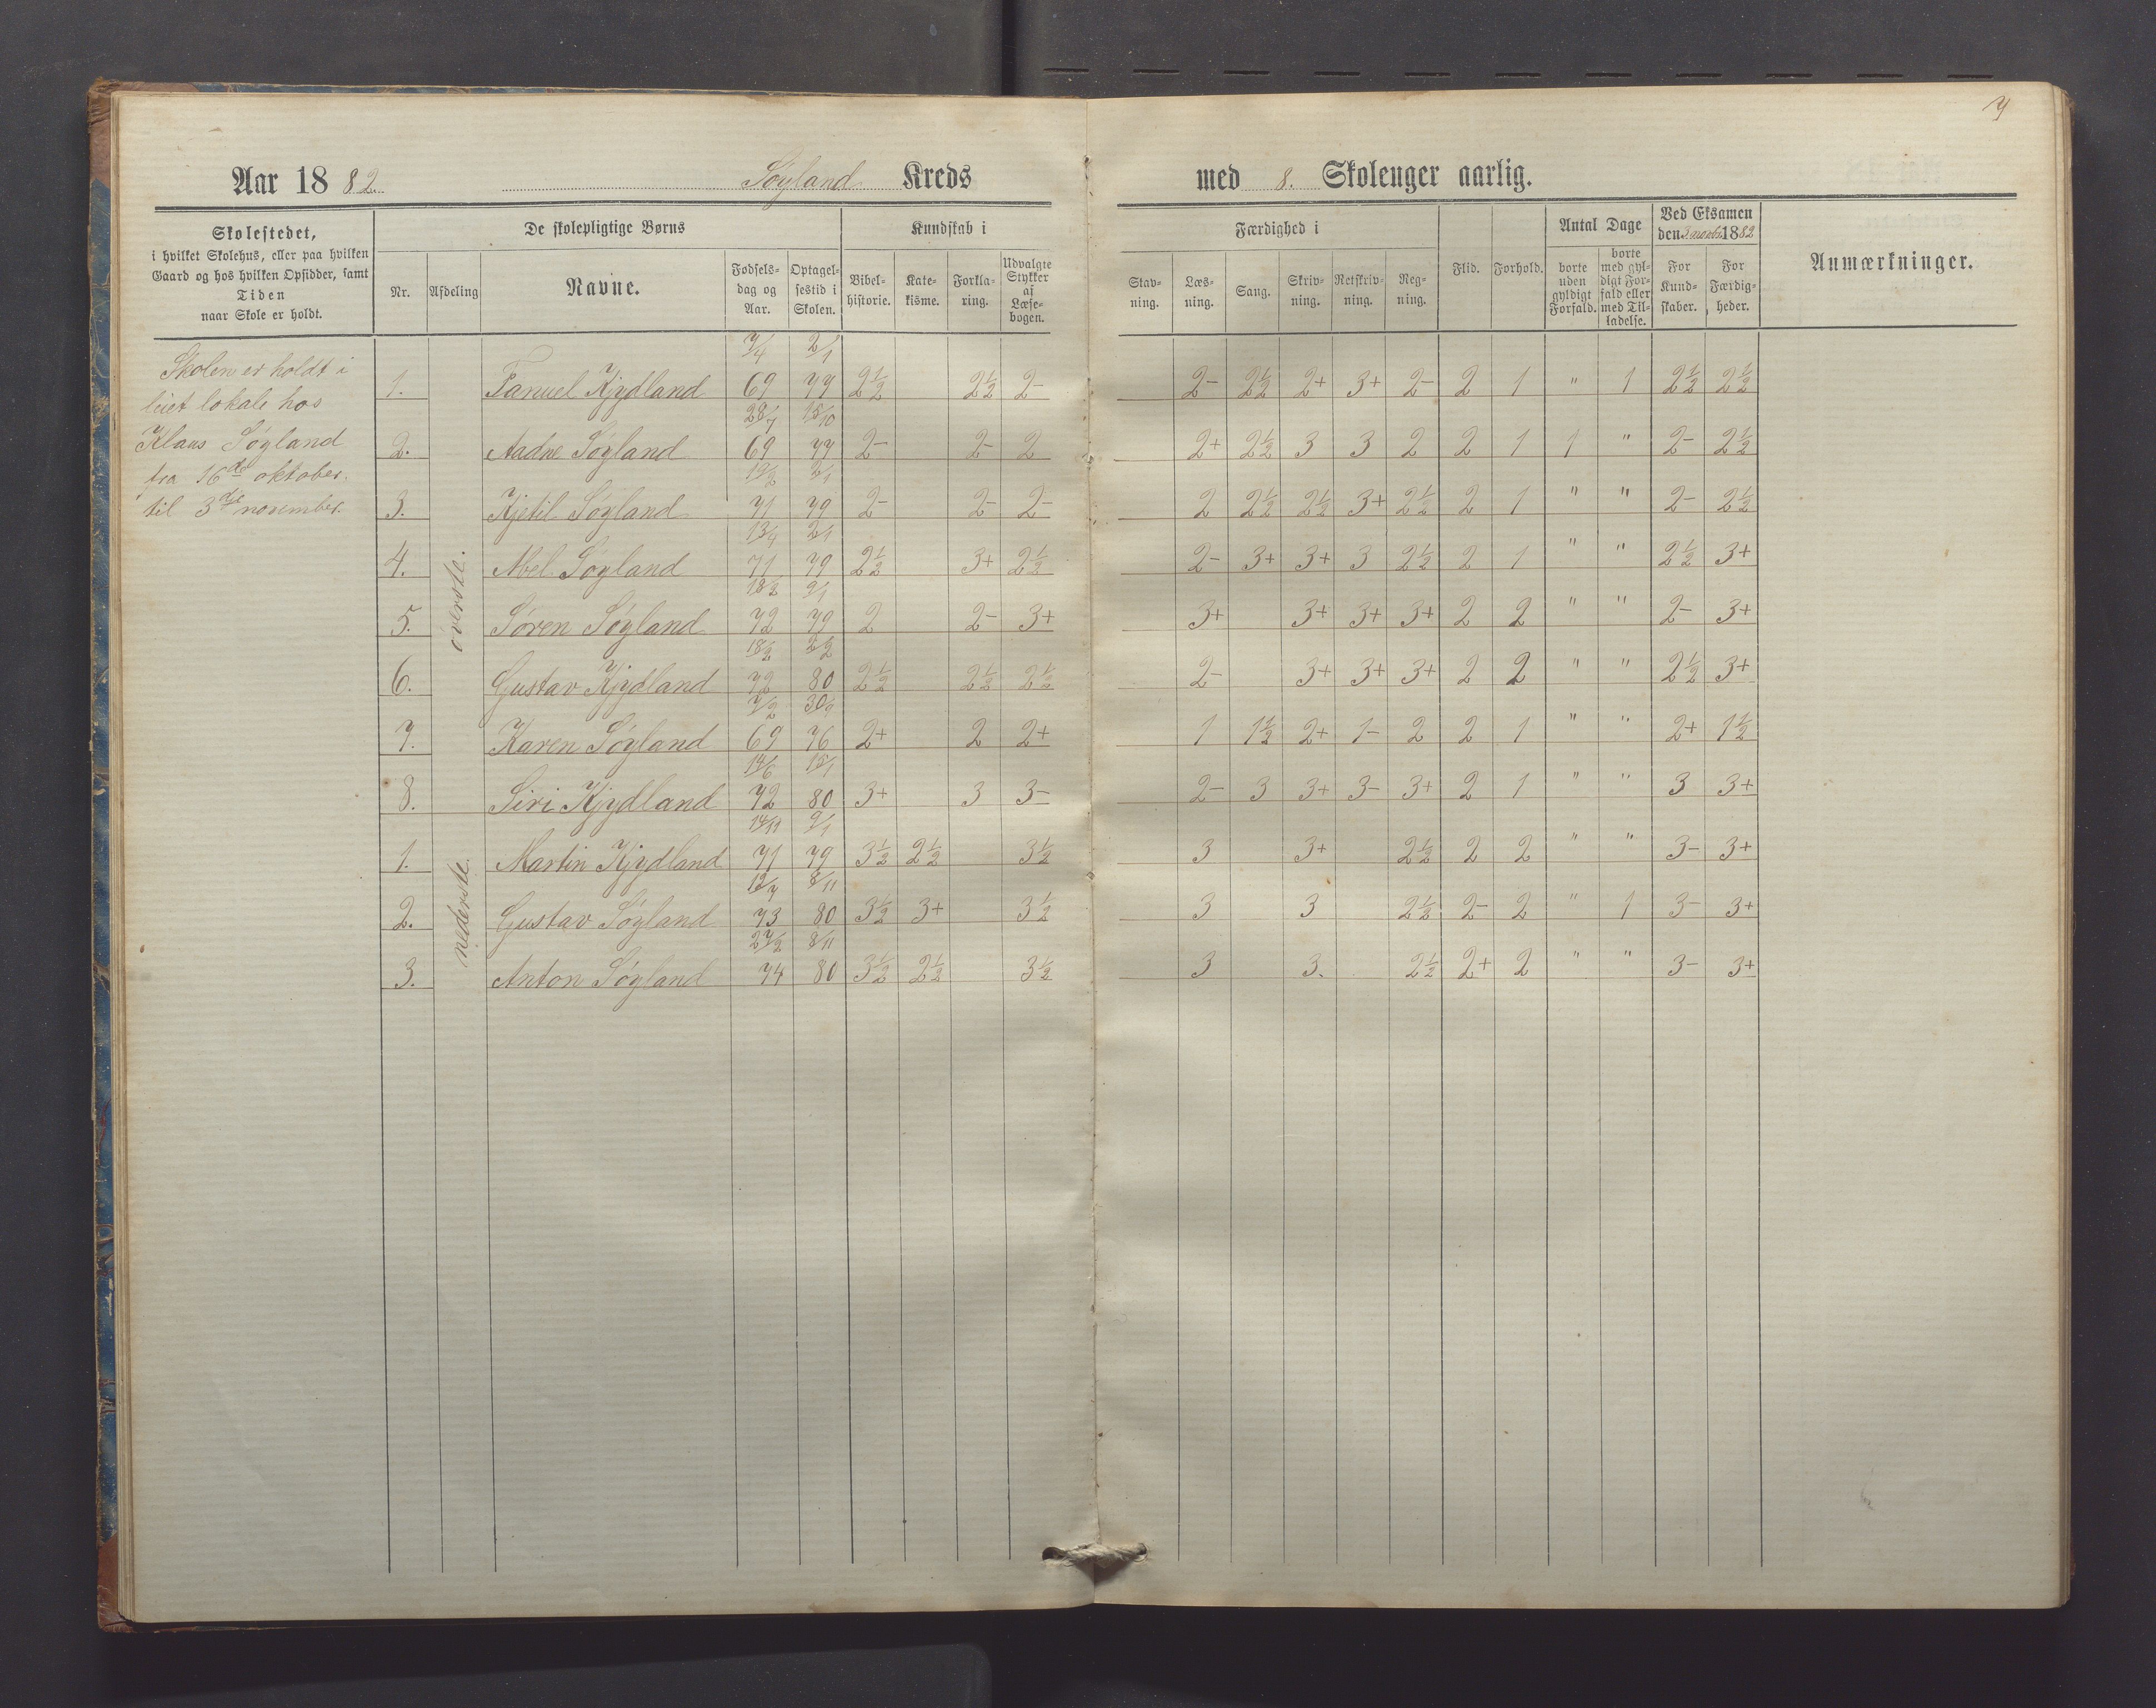 Aar 1882. Søyland Kreds med 8. Skoleuger aarlig.
Skolestedet,
i hvilket Skolehus, eller paa hvilken
Gaard og hos hvilken Opsidder, samt
Tiden
naar Skole er holdt.
De skolepligtige Børns
Nr. Afdeling Navne. Fødselsdag og Aar. Optagelsestid i Skolen.
Kundskab i
Bibelhistorie. Katekisme. Forklaring. Udvalgte Stykker af Læsebogen.
Færdighed i
Stavning. Læsning. Sang. Skrivning. Retskrivning. Regning.
Flid. Forhold.
Antal Dage
borte uden gyldigt Forfald. borte med gyldigt Forfald eller med Tilladelse.
Ved Eksamen
den 3 novbr 1882
For Kundskaber. For Færdigheder.
Anmærkninger.
Skolen er holdt i
leiet lokale hos
Klaus Søyland
fra 16de oktober
til 3die november.
øverste.
1. Fanuel Kjydland 7/4 69 2/1 77 2½ 2½ 2- 2- 2½ 2+ 3+ 2- 2 1 " 1 2½ 2½
2. Aadne Søyland 28/7 69 15/10 77 2- 2- 2 2+ 2½ 3 3 2 2 1 1 " 2- 2½
3. Kjetil Søyland 19/2 71 2/1 79 2- 2- 2- 2 2½ 2½ 3+ 2½ 2 1 " " 2- 2½
4. Abel Søyland 13/4 71 2/1 79 2½ 3+ 2½ 2- 3+ 3+ 3 2½ 2 1 " " 2½ 3+
5. Søren Søyland 18/2 72 9/1 79 2 2- 3+ 3+ 3+ 3+ 3+ 2 2 " " 2- 3+
6. Gustav Kjydland 18/2 72 2/2 80 2½ 2½ 2½ 2- 3+ 3+ 3+ 2 2 " " 2½ 3+
7. Karen Søyland 7/2 69 30/9 76 2+ 2 2+ 1 1½ 2+ 1- 2 2 1 " " 2+ 1½
8. Siri Kjydland 14/6 72 15/1 80 3+ 3 3- 2- 3 3+ 3- 3+ 2 1 " " 3 3+
nederste.
1. Martin Kjydland 14/11 71 9/1 79 3½ 2½ 3½ 3 3+ 2½ 2 2 " " 3- 3+
2. Gustav Søyland 12/7 73 8/11 80 3½ 3+ 3½ 3 3 2½ 2- 2 " 1 3- 3+
3. Anton Søyland 27/2 74 8/11 80 3½ 2½ 3½ 3 3. 2½ 2+ 2 " " 3- 3+